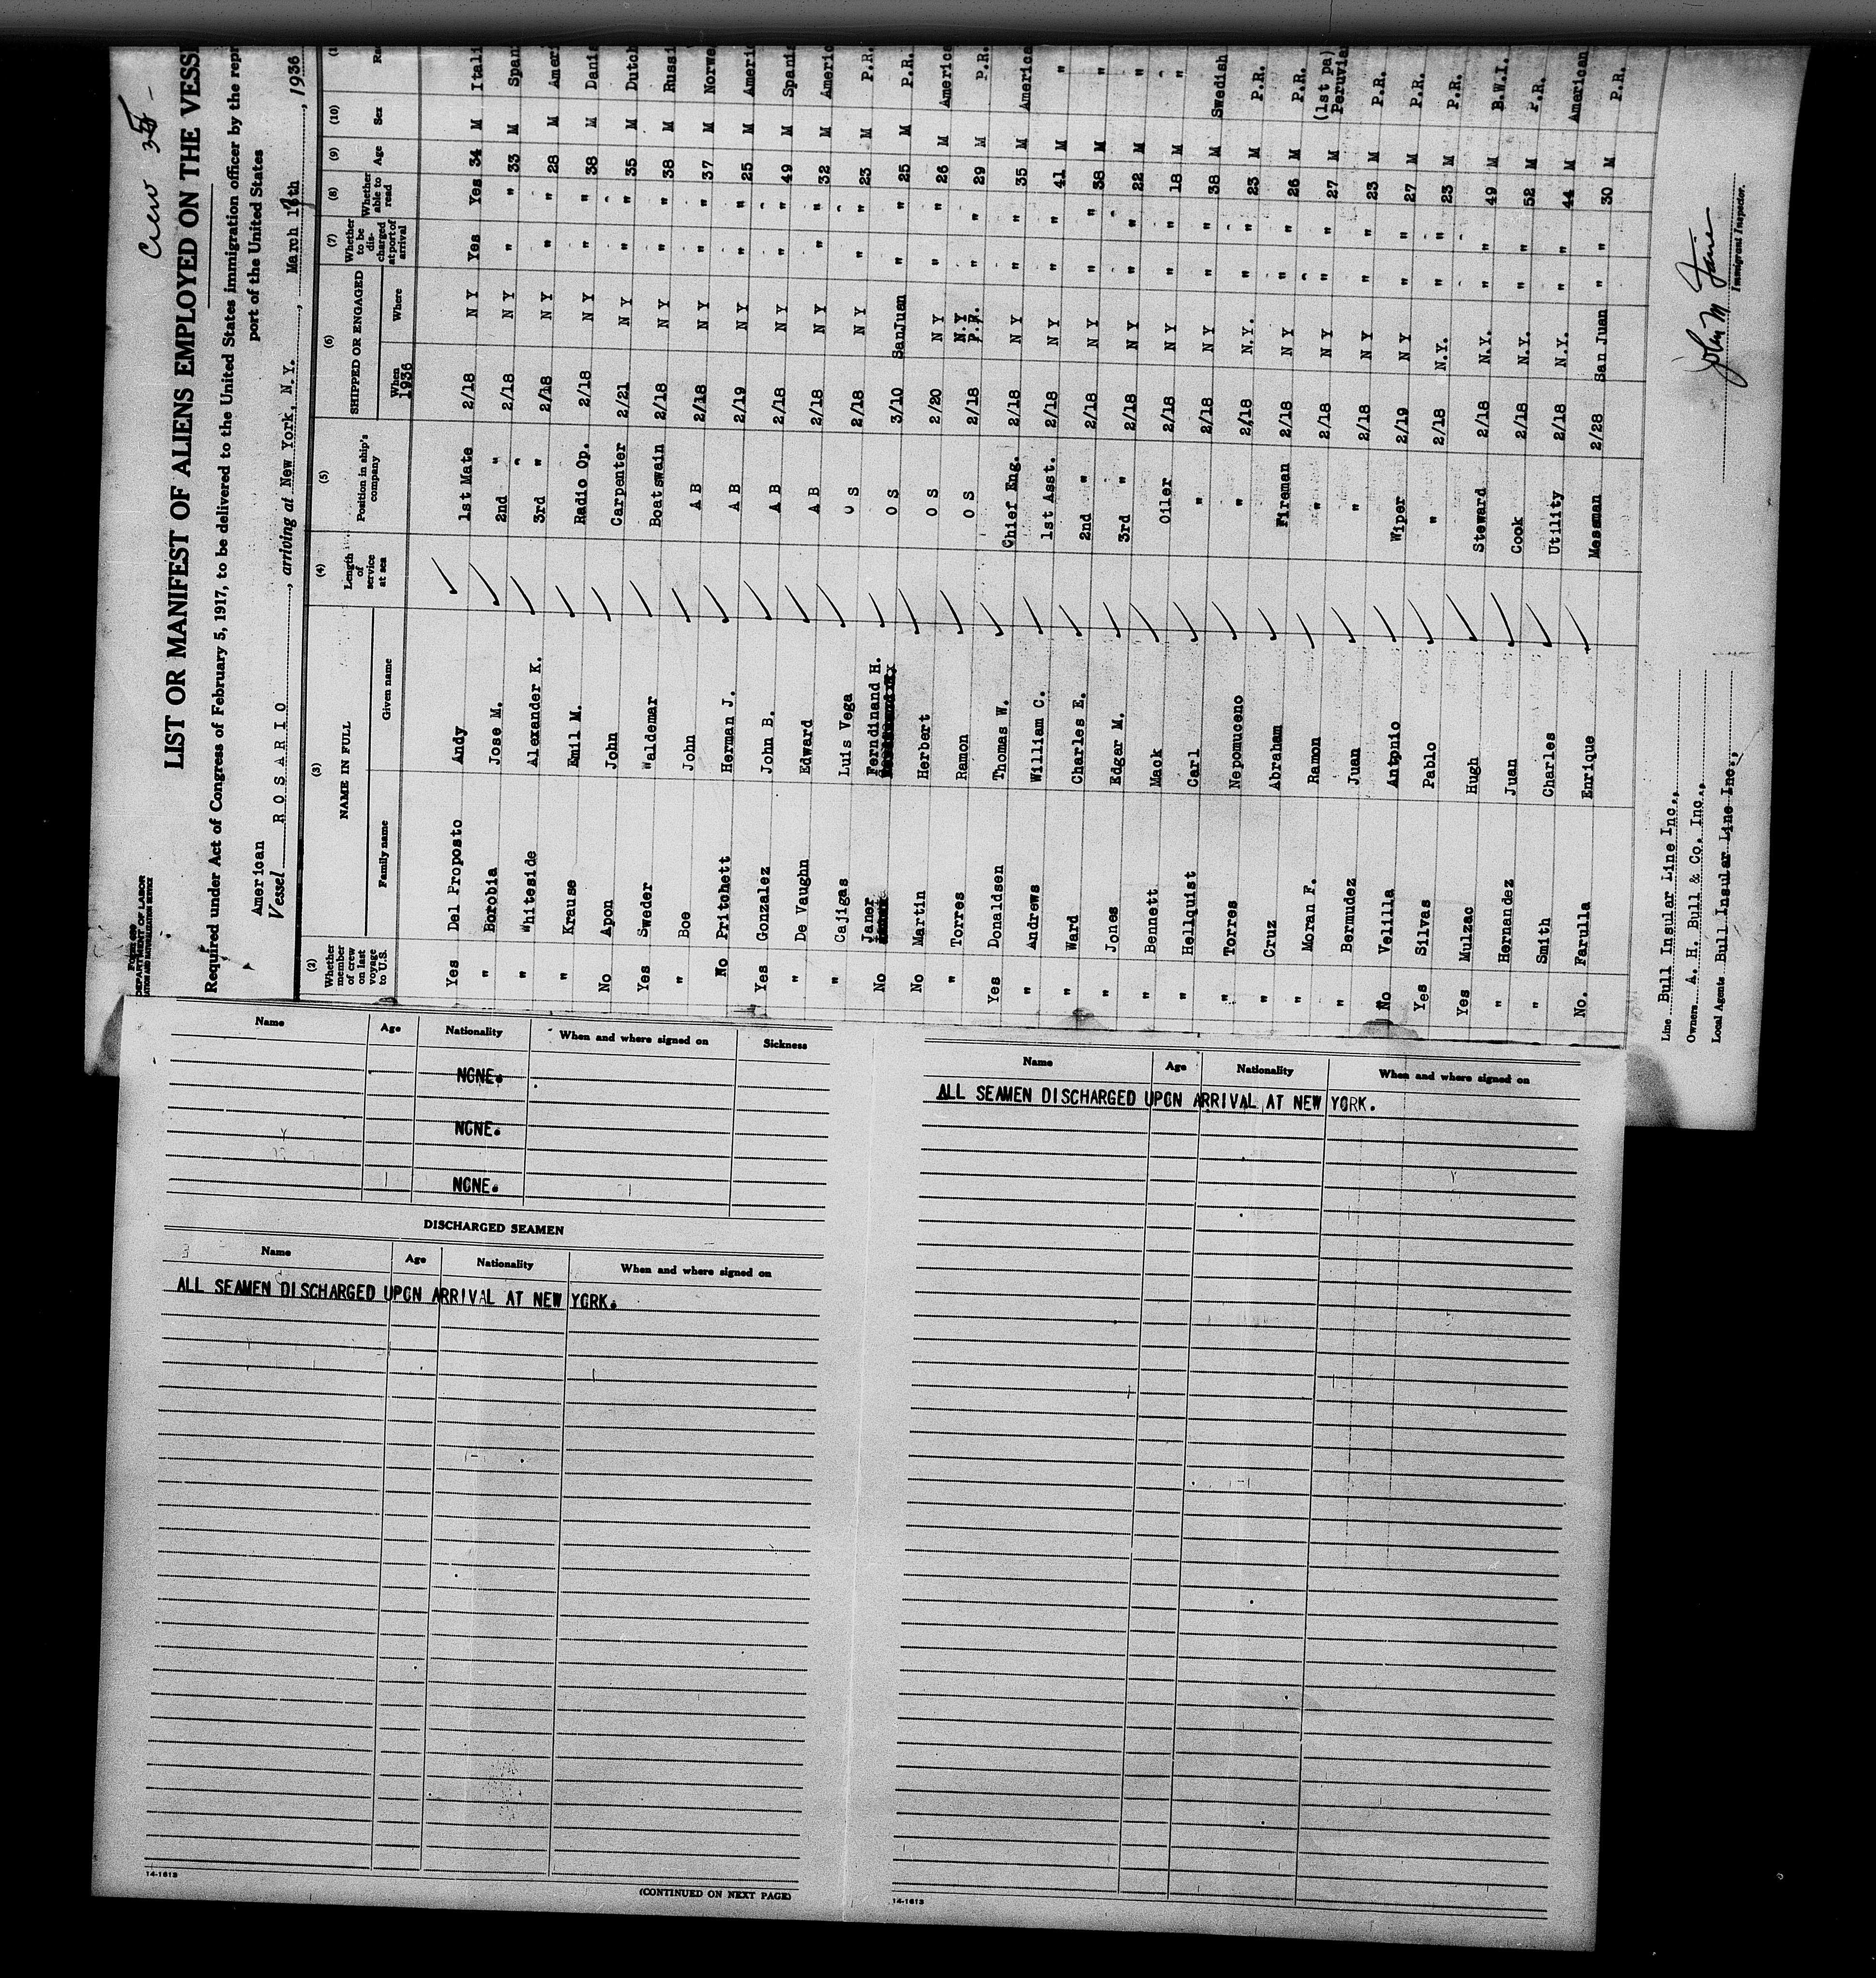 Crew 35 -
DEPARTMENT OF LABOR
LIST OR MANIFEST OF ALIENS EMPLOYED ON THE VESSE
Required under Act of Congress of February 5, 1917, to be delivered to the United States immigration officer by the repr
port of the United States
American
Vessel ROSARIO, arriving at New York, N.Y., March 17th, 1936
(2) (3) (4) (5) (6) (7) (8) (9) (10)
Whether member of crew on last voyage to U.S. NAME IN FULL Family name Given name Length of service at sea Position in ship's company SHIPPED OR ENGAGED When 1936 Where Whether to be discharged at port of arrival Whether able to read Age Sex
Yes Del Proposto Andy 1st Mate 2/18 N Y Yes Yes 34 M Itali
" Borobia Jose M. 2nd " 2/18 N Y " " 33 M Span
" Whiteside Alexander K. 3rd " 2/18 N Y " " 28 M Ameri
" Krause Emil M. Radio Op. 2/18 N Y " " 38 M Dani
No Apon John Carpenter 2/21 N Y " " 35 M Dutch
Yes Sweder Waldemar Boatswain 2/18 N Y " " 38 M Russi
" Boe John A B 2/18 N Y " " 37 M Norwe
No Pritchett Herman J. A B 2/19 N Y " " 25 M Americ
Yes Gonzalez John B. A B 2/18 N Y " " 49 M Spanis
" De Vaughn Edward A B 2/18 N Y " " 32 M Americ
" Cajigas Luis Vega O S 2/18 N Y " " 23 M P.R.
No Janer Ferndinand H. O S 3/10 SanJuan " " 25 M P.R.
No Martin Herbert O S 2/20 N Y " " 26 M America
" Torres Ramon O S 2/18 N.Y P.R. " " 29 M P.R.
Yes Donaldsen Thomas W. Chief Eng. 2/18 N Y " " 35 M America
" Andrews William C. 1st Asst. 2/18 N Y " " 41 M "
" Ward Charles E. 2nd " 2/18 N Y " " 38 M "
" Jones Edgar M. 3rd " 2/18 N Y " " 22 M "
" Bennett Mack Oiler 2/18 N Y " " 18 M "
" Hellquist Carl " 2/18 N Y " " 38 M Swedish
" Torres Nepomuceno " 2/18 N.Y. " " 23 M P.R.
" Cruz Abraham Fireman 2/18 N Y " " 26 M P.R.
" Moran F. Ramon " 2/18 N Y " " 27 M (1st pa) Peruvia
" Bermudez Juan " 2/18 N Y " " 23 M P.R.
No Velilla Antonio Wiper 2/19 N Y " " 27 M P.R.
Yes Silvas Pablo " 2/18 N.Y. " " 23 M P.R.
Yes Mulzac Hugh Steward 2/18 N.Y. " 49 M B.W.I.
" Hernandez Juan Cook 2/18 N.Y. " 52 M P.R.
" Smith Charles Utility 2/18 N.Y. " 44 M American
No. Farulla Enrique Messman 2/28 San Juan " 30 M P.R.
Line Bull Insular Line Inc.,
Owners A. H. Bull & Co. Inc.,
Local Agents Bull Insular Line Inc.,
Immigrant Inspector.
Name Age Nationality When and where signed on Sickness
NONE.
NONE.
NONE.
DISCHARGED SEAMEN
Name Age Nationality When and where signed on
ALL SEAMEN DISCHARGED UPON ARRIVAL AT NEW YORK.
14-1613
(CONTINUED ON NEXT PAGE)
Name Age Nationality When and where signed on
ALL SEAMEN DISCHARGED UPON ARRIVAL AT NEW YORK.
14-1613